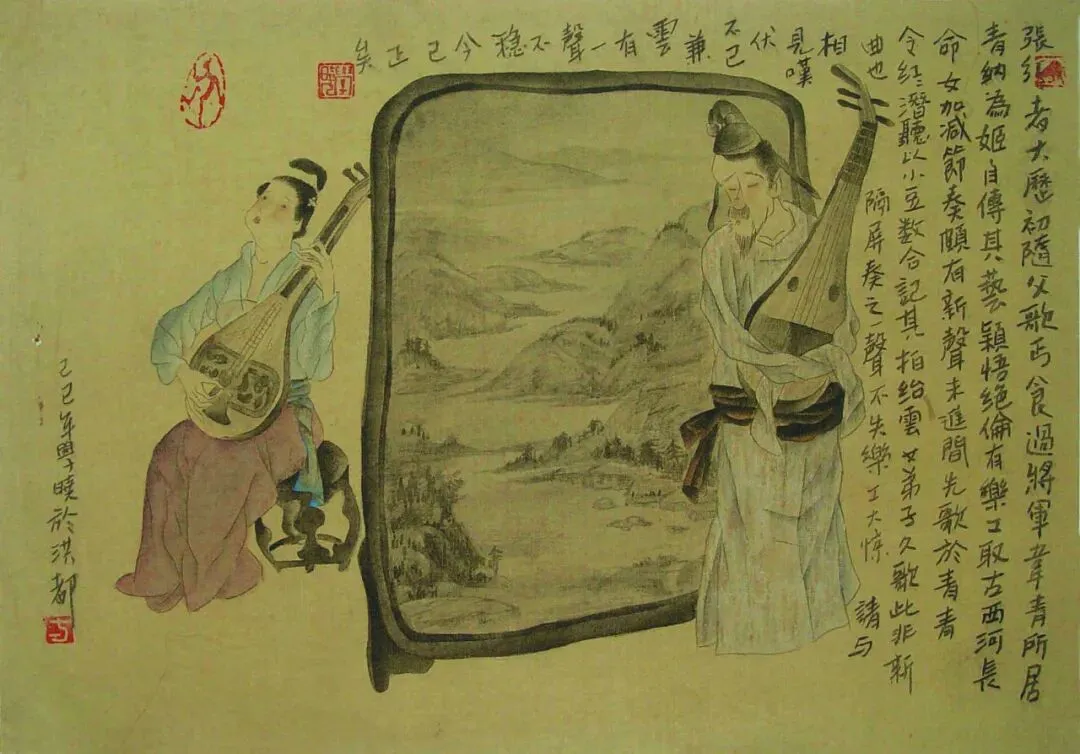 張紅者大歷初隨父歌丐食過將軍韋青所居
青納為姬自傳其藝穎悟絕倫有樂工取古西河長
命女加減節奏頗有新聲未進間先歌於青青
令红潛聽以小豆数合記其拍紿雲女弟子久歌此非新
曲也隔屏奏之一聲不失樂工大惊請与
相見嘆伏不已兼雲有一聲不穩今已正矣
己巳年學曉於洪都